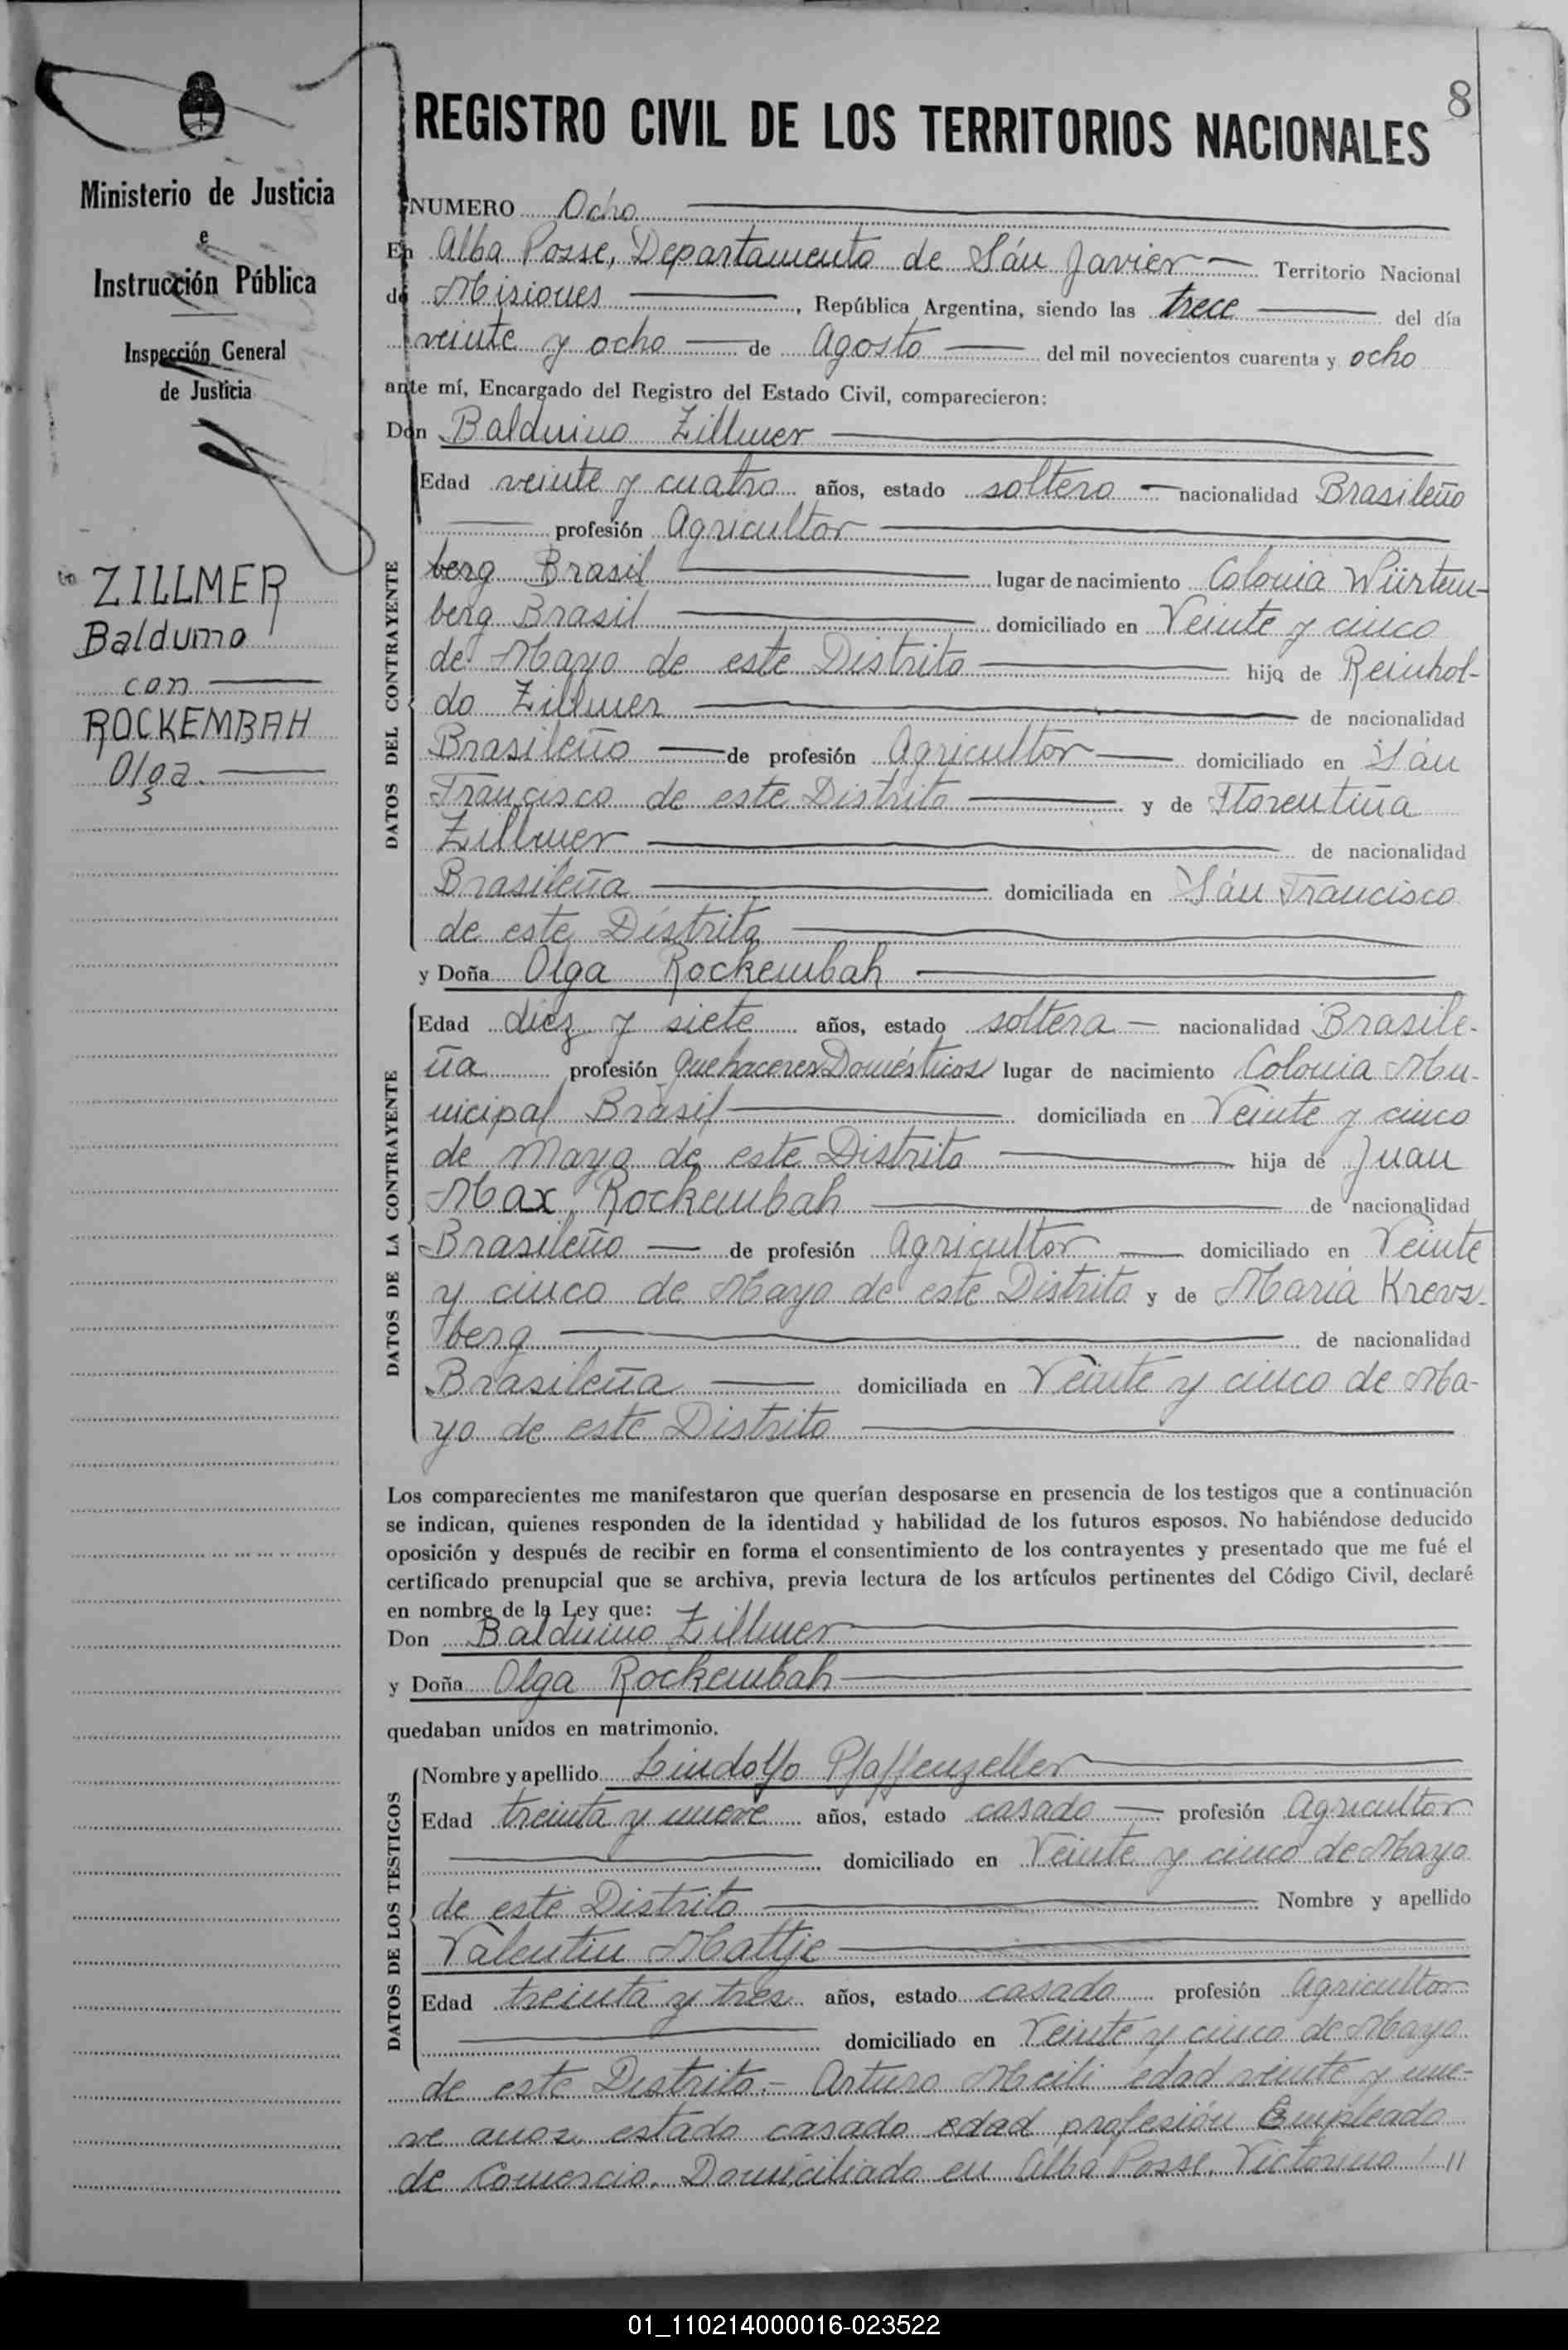 8
REGISTRO CIVIL DE LOS TERRITORIOS NACIONALES
Ministerio de Justicia
e
Instrucción Pública
Inspección General
de Justicia
ZILLMER
Balduino
con
ROCKEMBAH
Olga.
NUMERO Ocho
En Alba Posse, Departamento de Sán Javier Territorio Nacional
de Misiones, República Argentina, siendo las trece del día
veinte y ocho de Agosto del mil novecientos cuarenta y ocho
ante mí, Encargado del Registro del Estado Civil, comparecieron:
Don Balduino Zillmer
DATOS DEL CONTRAYENTE
Edad veinte y cuatro años, estado soltero nacionalidad Brasileño
profesión Agricultor
berg Brasil lugar de nacimiento Colonia Würtem-
berg Brasil domiciliado en Veinte y cinco
de Mayo de este Distrito hijo de Reinhol-
do Zillmer de nacionalidad
Brasileño de profesión Agricultor domiciliado en Sán
Francisco de este Distrito y de Florentina
Zillmer de nacionalidad
Brasileña domiciliada en Sán Francisco
de este Distrito
y Doña Olga Rockembah
DATOS DE LA CONTRAYENTE
Edad diez y siete años, estado soltera nacionalidad Brasile-
ña profesión Quehaceres Domésticos lugar de nacimiento Colonia Mu-
nicipal Brasil domiciliada en Veinte y cinco
de Mayo de este Distrito hija de Juan
Max Rockembah de nacionalidad
Brasileño de profesión Agricultor domiciliado en Veinte
y cinco de Mayo de este Distrito y de Maria
berg de nacionalidad
Brasileña domiciliada en Veinte y cinco de Ma-
yo de este Distrito
Los comparecientes me manifestaron que querían desposarse en presencia de los testigos que a continuación
se indican, quienes responden de la identidad y habilidad de los futuros esposos. No habiéndose deducido
oposición y después de recibir en forma el consentimiento de los contrayentes y presentado que me fué el
certificado prenupcial que se archiva, previa lectura de los artículos pertinentes del Código Civil, declaré
en nombre de la Ley que:
Don Balduino Zillmer
y Doña Olga Rockembah
quedaban unidos en matrimonio.
DATOS DE LOS TESTIGOS
Nombre y apellido Lindolfo Pfaffenzeller
Edad treinta y nueve años, estado casado profesión Agricultor
domiciliado en Veinte y cinco de Mayo
de este Distrito Nombre y apellido
Valentin Mattje
Edad treinta y tres años, estado casado profesión Agricultor
domiciliado en Veinte y cinco de Mayo
de este Distrito.- Arturo Meili edad veinte y nue-
ve anos estado casado edad profesión Empleado
de Comercio. Domiciliado en Alba Posse, Victorino
01_110214000016-023522